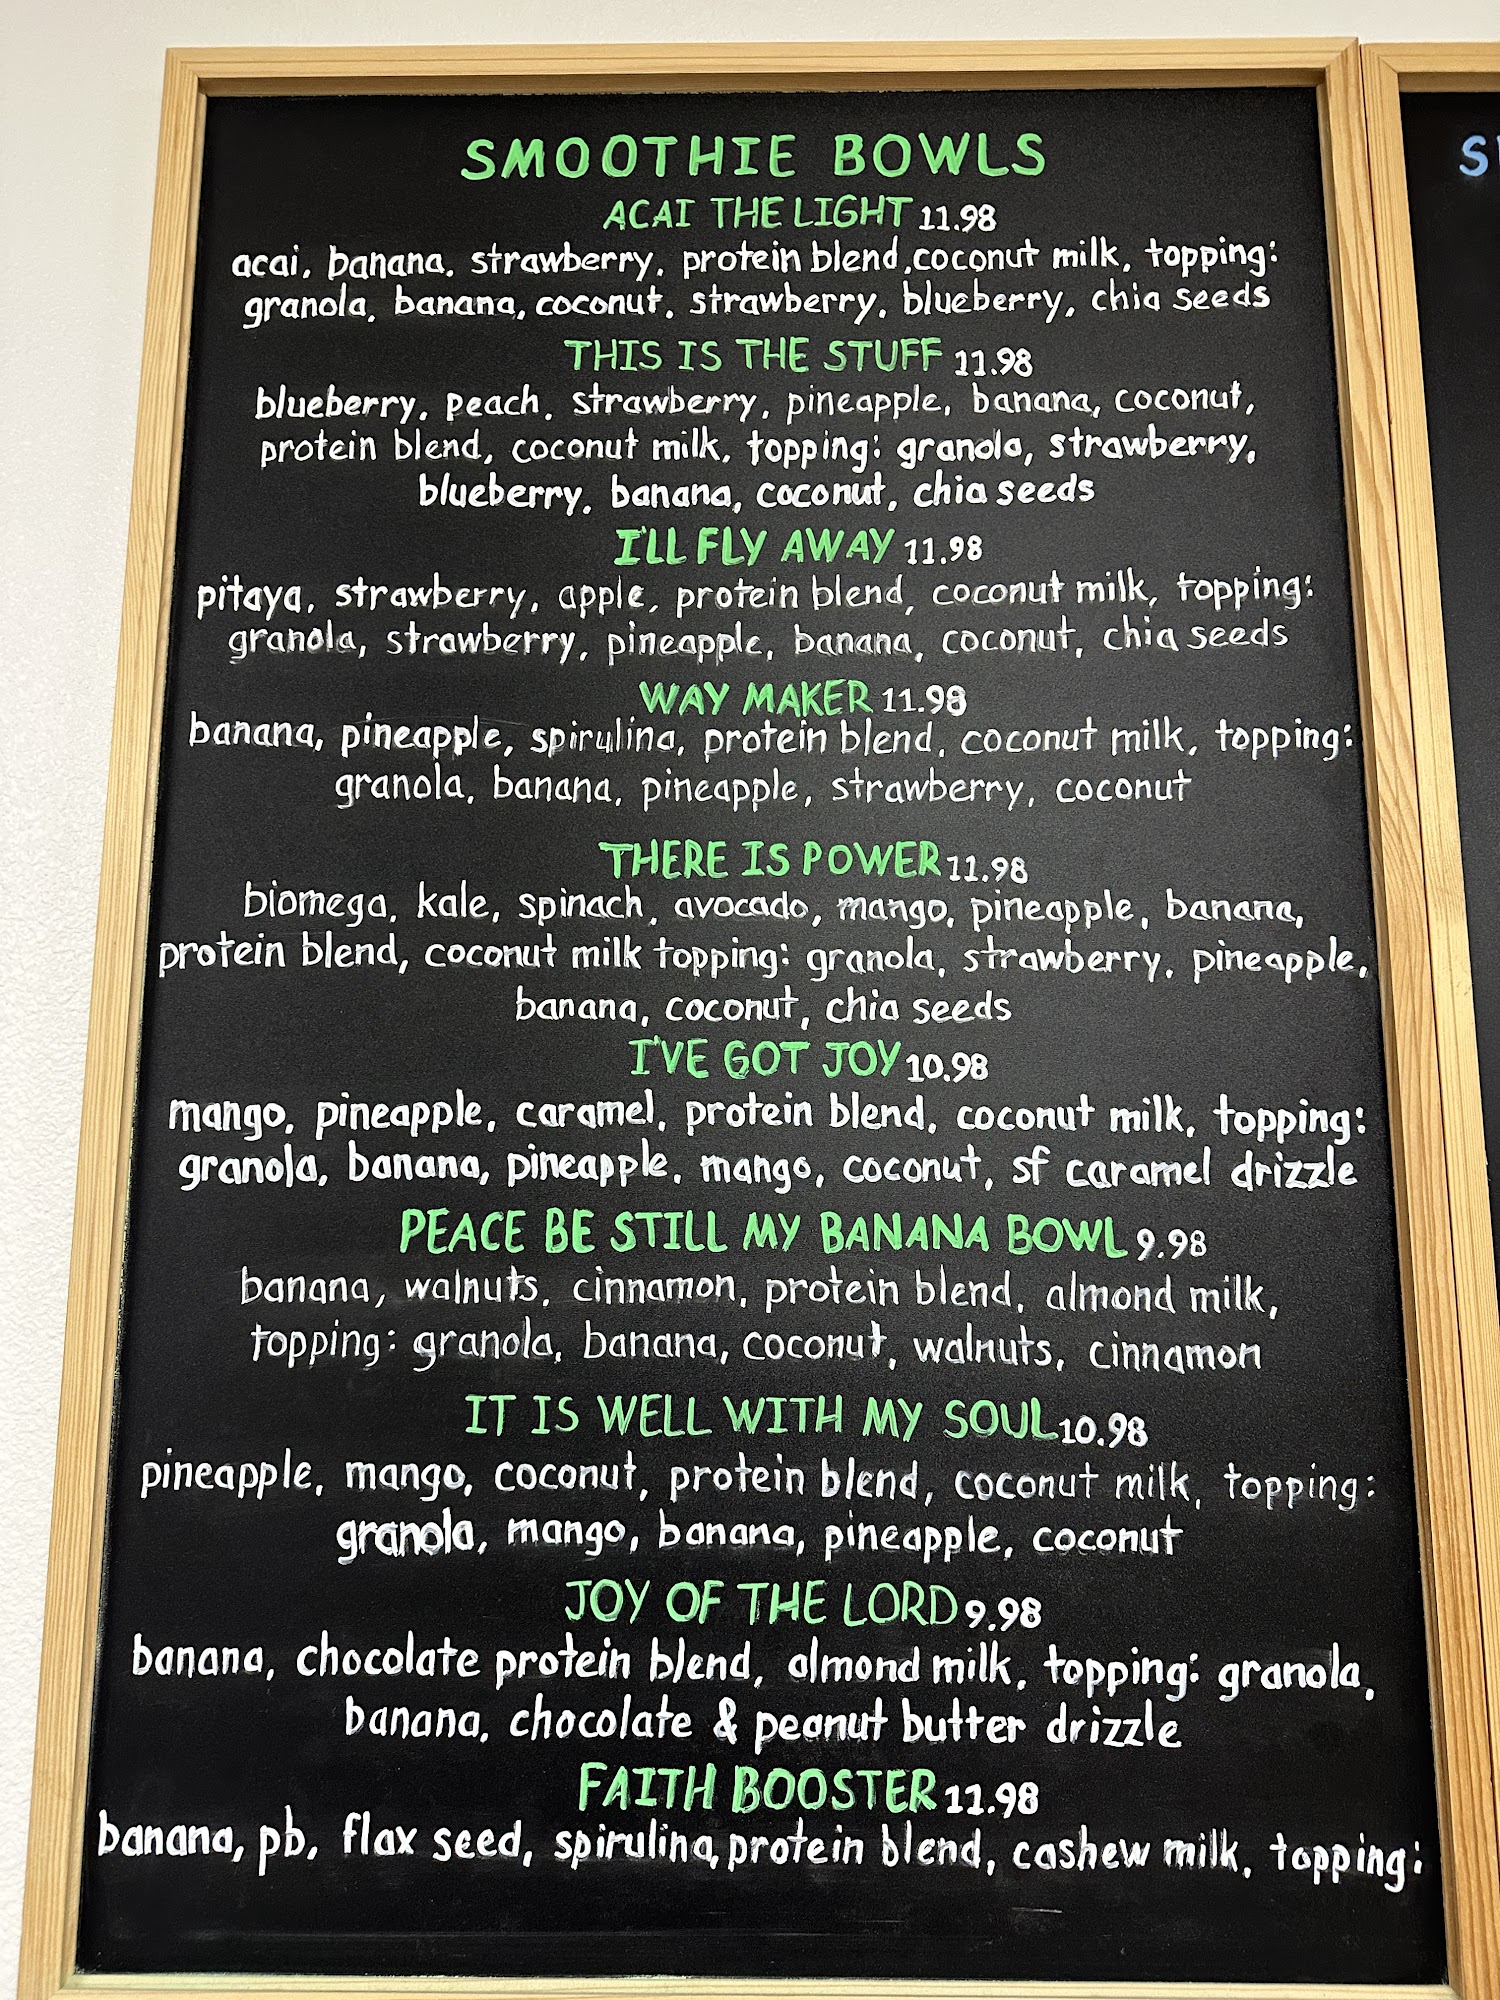 SMOOTHIE BOWLS
ACAI THE LIGHT 11.98
acai, banana, strawberry, protein blend, coconut milk, topping:
granola, banana, coconut, strawberry, blueberry, chia seeds
THIS IS THE STUFF 11.98
blueberry, peach, strawberry, pineapple, banana, coconut,
protein blend, coconut milk, topping: granola, strawberry,
blueberry, banana, coconut, chia seeds
I'LL FLY AWAY 11.98
pitaya, strawberry, apple, protein blend, coconut milk, topping:
granola, strawberry, pineapple, banana, coconut, chia seeds
WAY MAKER 11.98
banana, pineapple, spirulina, protein blend, coconut milk, topping:
granola, banana, pineapple, strawberry, coconut
THERE IS POWER 11.98
biomega, kale, spinach, avocado, mango, pineapple, banana,
protein blend, coconut milk topping: granola, strawberry, pineapple,
banana, coconut, chia seeds
I'VE GOT JOY 10.98
mango, pineapple, caramel, protein blend, coconut milk, topping:
granola, banana, pineapple, mango, coconut, sf caramel drizzle
PEACE BE STILL MY BANANA BOWL 9.98
banana, walnuts, cinnamon, protein blend, almond milk,
topping: granola, banana, coconut, walnuts, cinnamon
IT IS WELL WITH MY SOUL 10.98
pineapple, mango, coconut, protein blend, coconut milk, topping:
granola, mango, banana, pineapple, coconut
JOY OF THE LORD 9.98
banana, chocolate protein blend, almond milk, topping: granola,
banana, chocolate & peanut butter drizzle
FAITH BOOSTER 11.98
banana, pb, flax seed, spirulina, protein blend, cashew milk, topping: